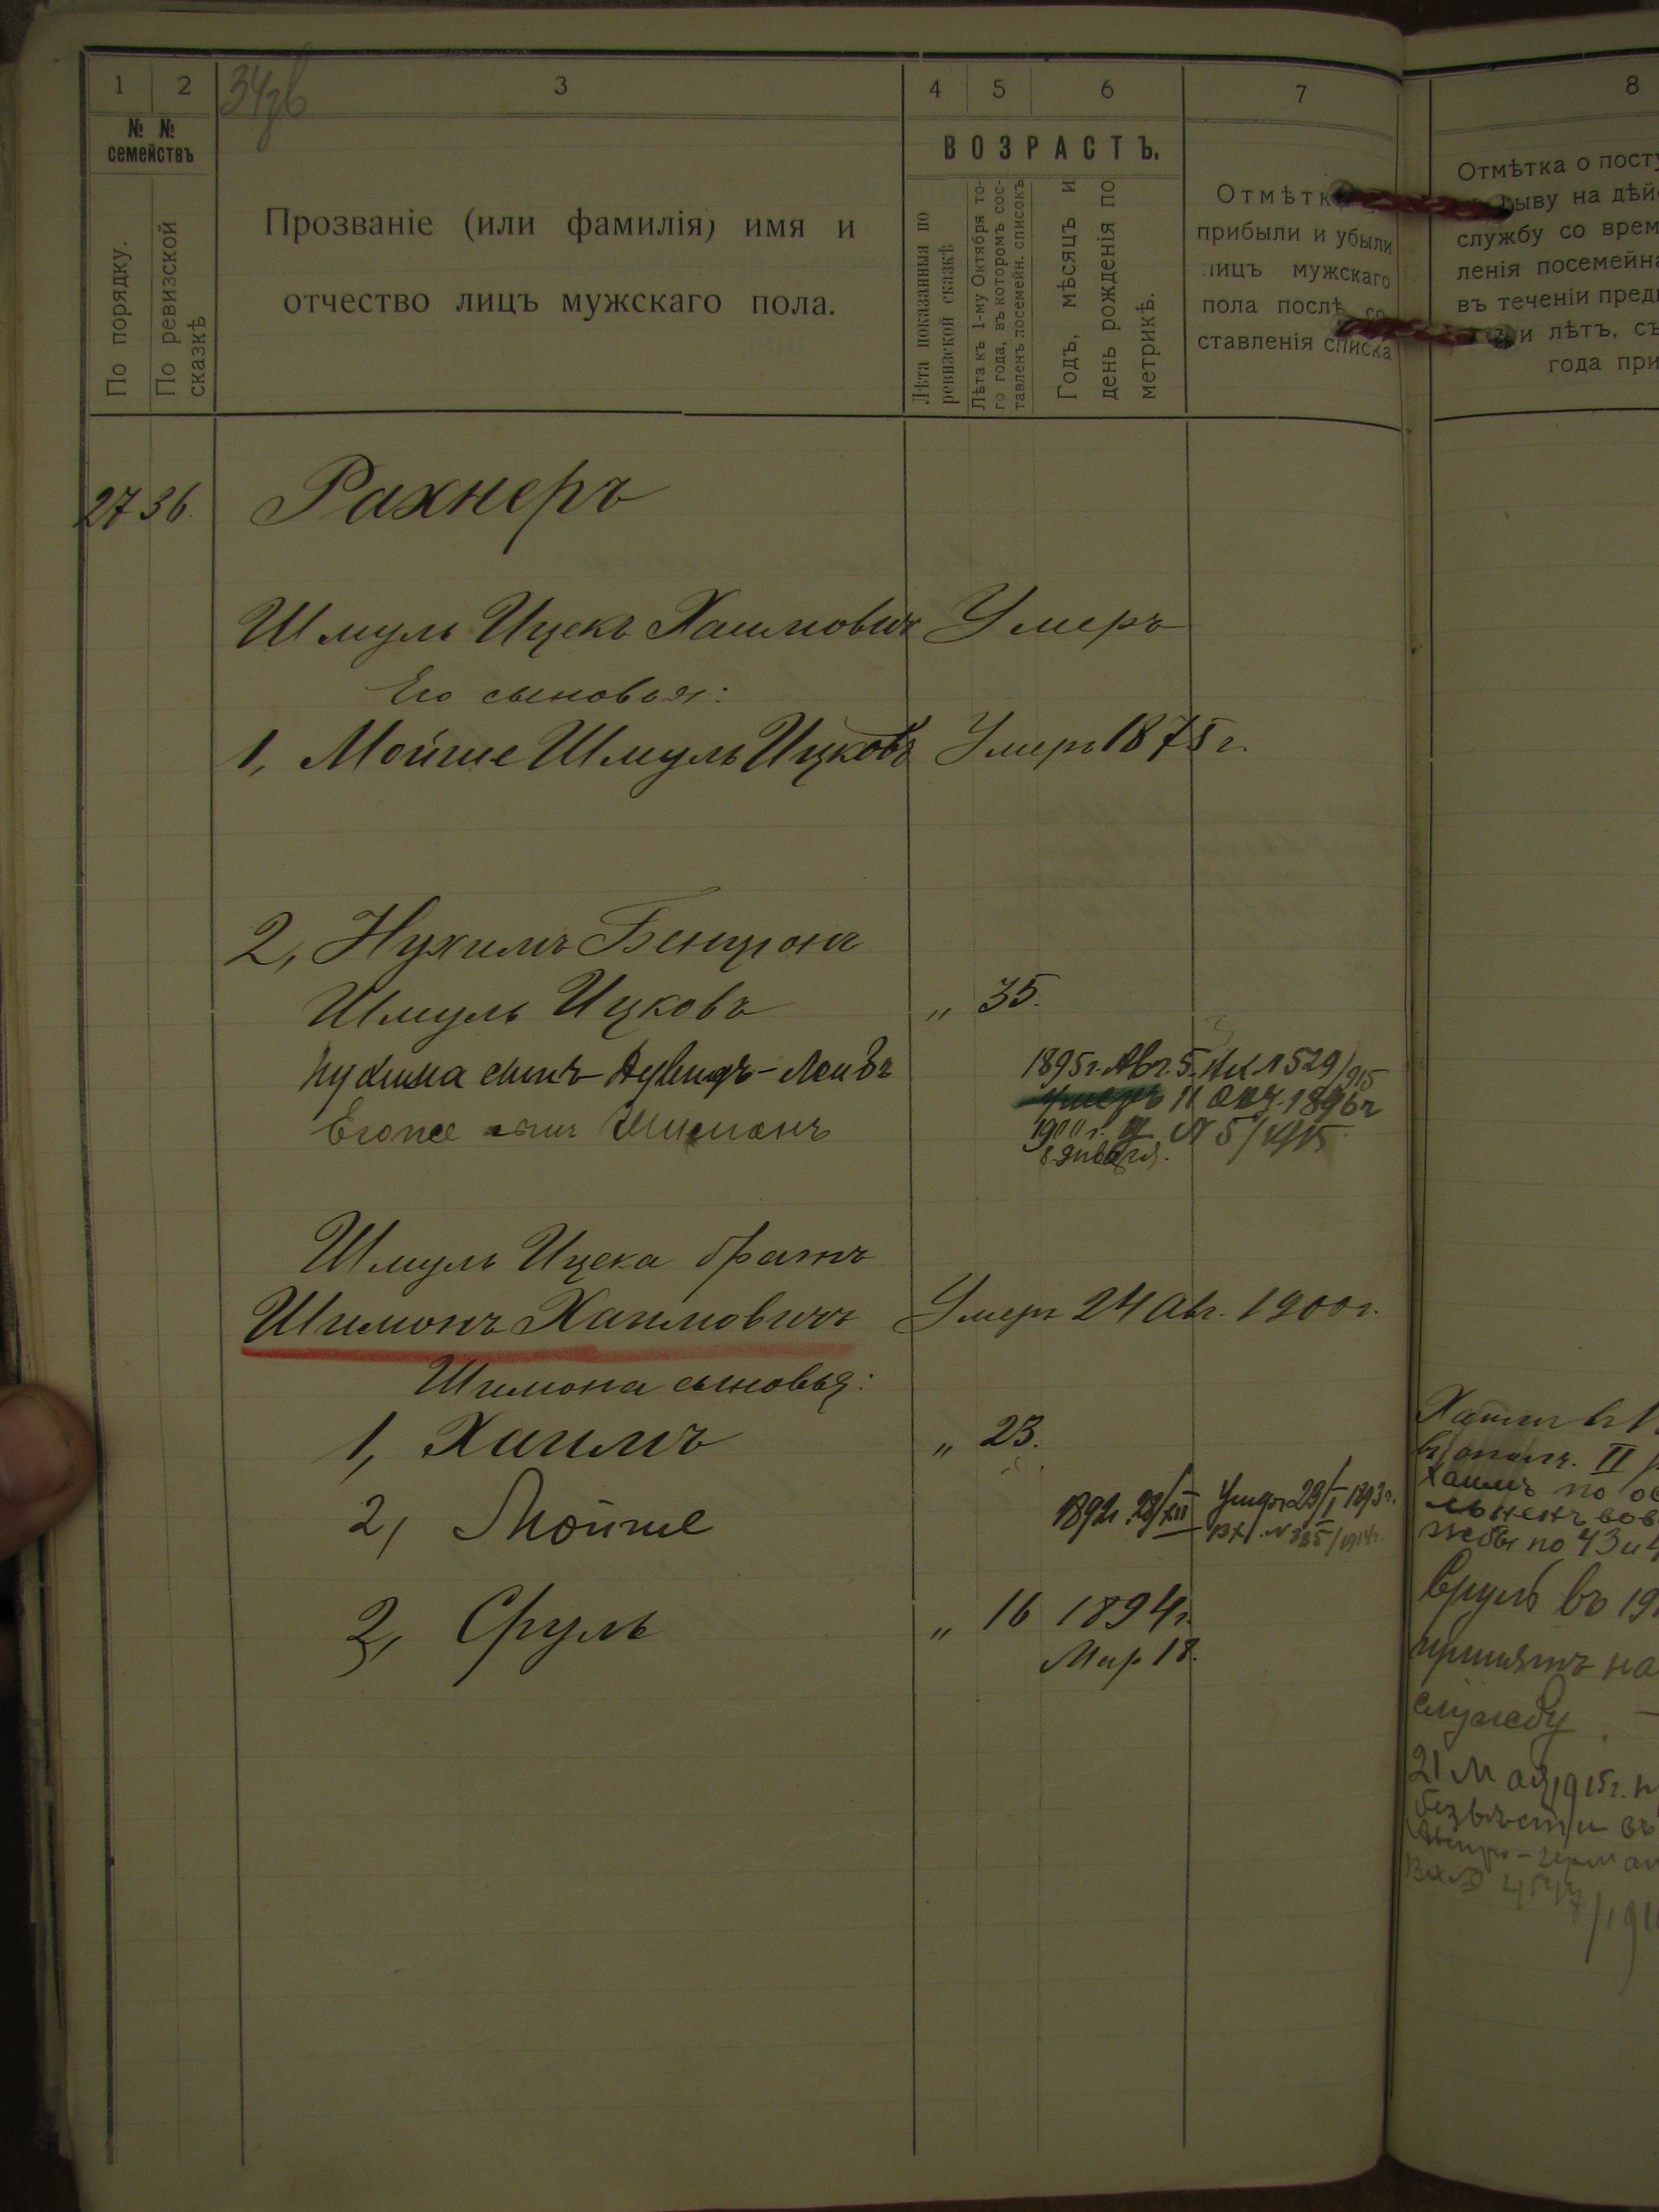 1 2 3 4 5 6 7 8
№ № семействъ
По порядку.
По ревизской сказкѣ
Прозваніе (или фамилія) имя и
отчество лицъ мужскаго пола.
ВОЗРАСТЪ.
Лѣта показанныя по
ревизской сказкѣ
Лѣта къ 1-му Октября то-
го года, въ которомъ сос-
тавленъ посемейн. списокъ
Годъ, мѣсяцъ и
день рожденія по
метрикѣ.
прибыли и убыли
лицъ мужскаго
пола послѣ со
ставленія списка
Отмѣтка о посту
ыву на дѣй
службу со врем
ленія посемейна
въ теченіи пред
и лѣтъ, съ
года при
27 36. Рахнеръ
Шмуль Ицекъ Хаимовичъ Умеръ
Его сыновья:
1, Мойше Шмуль Ицковъ Умеръ 1875 г.
2, Нухимъ Бенціонъ
Шмуль Ицковъ „ 35.
Нухима сынъ Дувидъ-Лейзъ 1895 г. Авг. 5. 1529/915
умеръ 11 1896 г
Егоже сынъ Шимонъ 1900 г. № 5/1915
8 января.
Шмуль Ицека братъ
Шимонъ Хаимовичъ Умеръ 24 Авг. 1900 г.
Шимона сыновья:
1, Хаимъ „ 23.
2, Мойше 1892 г. 28/XII Умеръ 29/I 1893 г.
Вх. № 385/1914 г.
3, Сруль „ 16 1894 г.
Мар 18.
Хаимъ въ 1
въ ополч. II
Хаимъ по
жбы по 43 и 4
Сруль въ 19
принятъ на
службу
21 Мая 1915 г.
безвѣсти въ
Австро-герман
Вх. № 4547/191